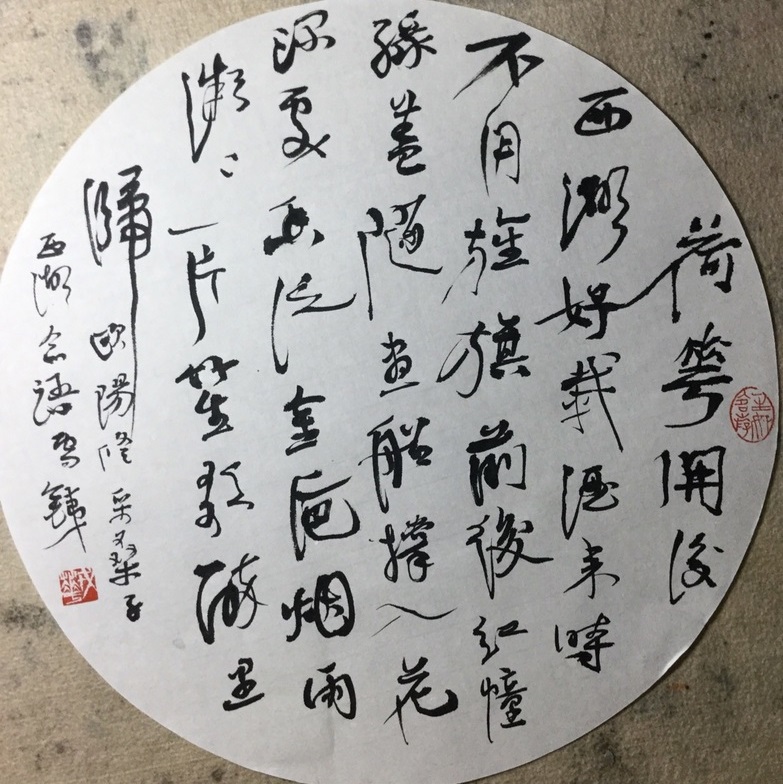 荷華開後
西湖好載酒来時
不用旌旗前後紅幢
緑盖隨画船撑入花
深處香泛金卮烟雨
微〻一片笙歌醉里
歸
欧陽修采桑子
西湖念語